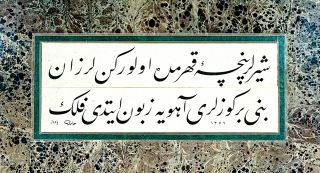 شیرلر پنجۀ قهرمدن اولورکن لرزان
بنی بر کوزلری آهویه زبون ایتدی فلك